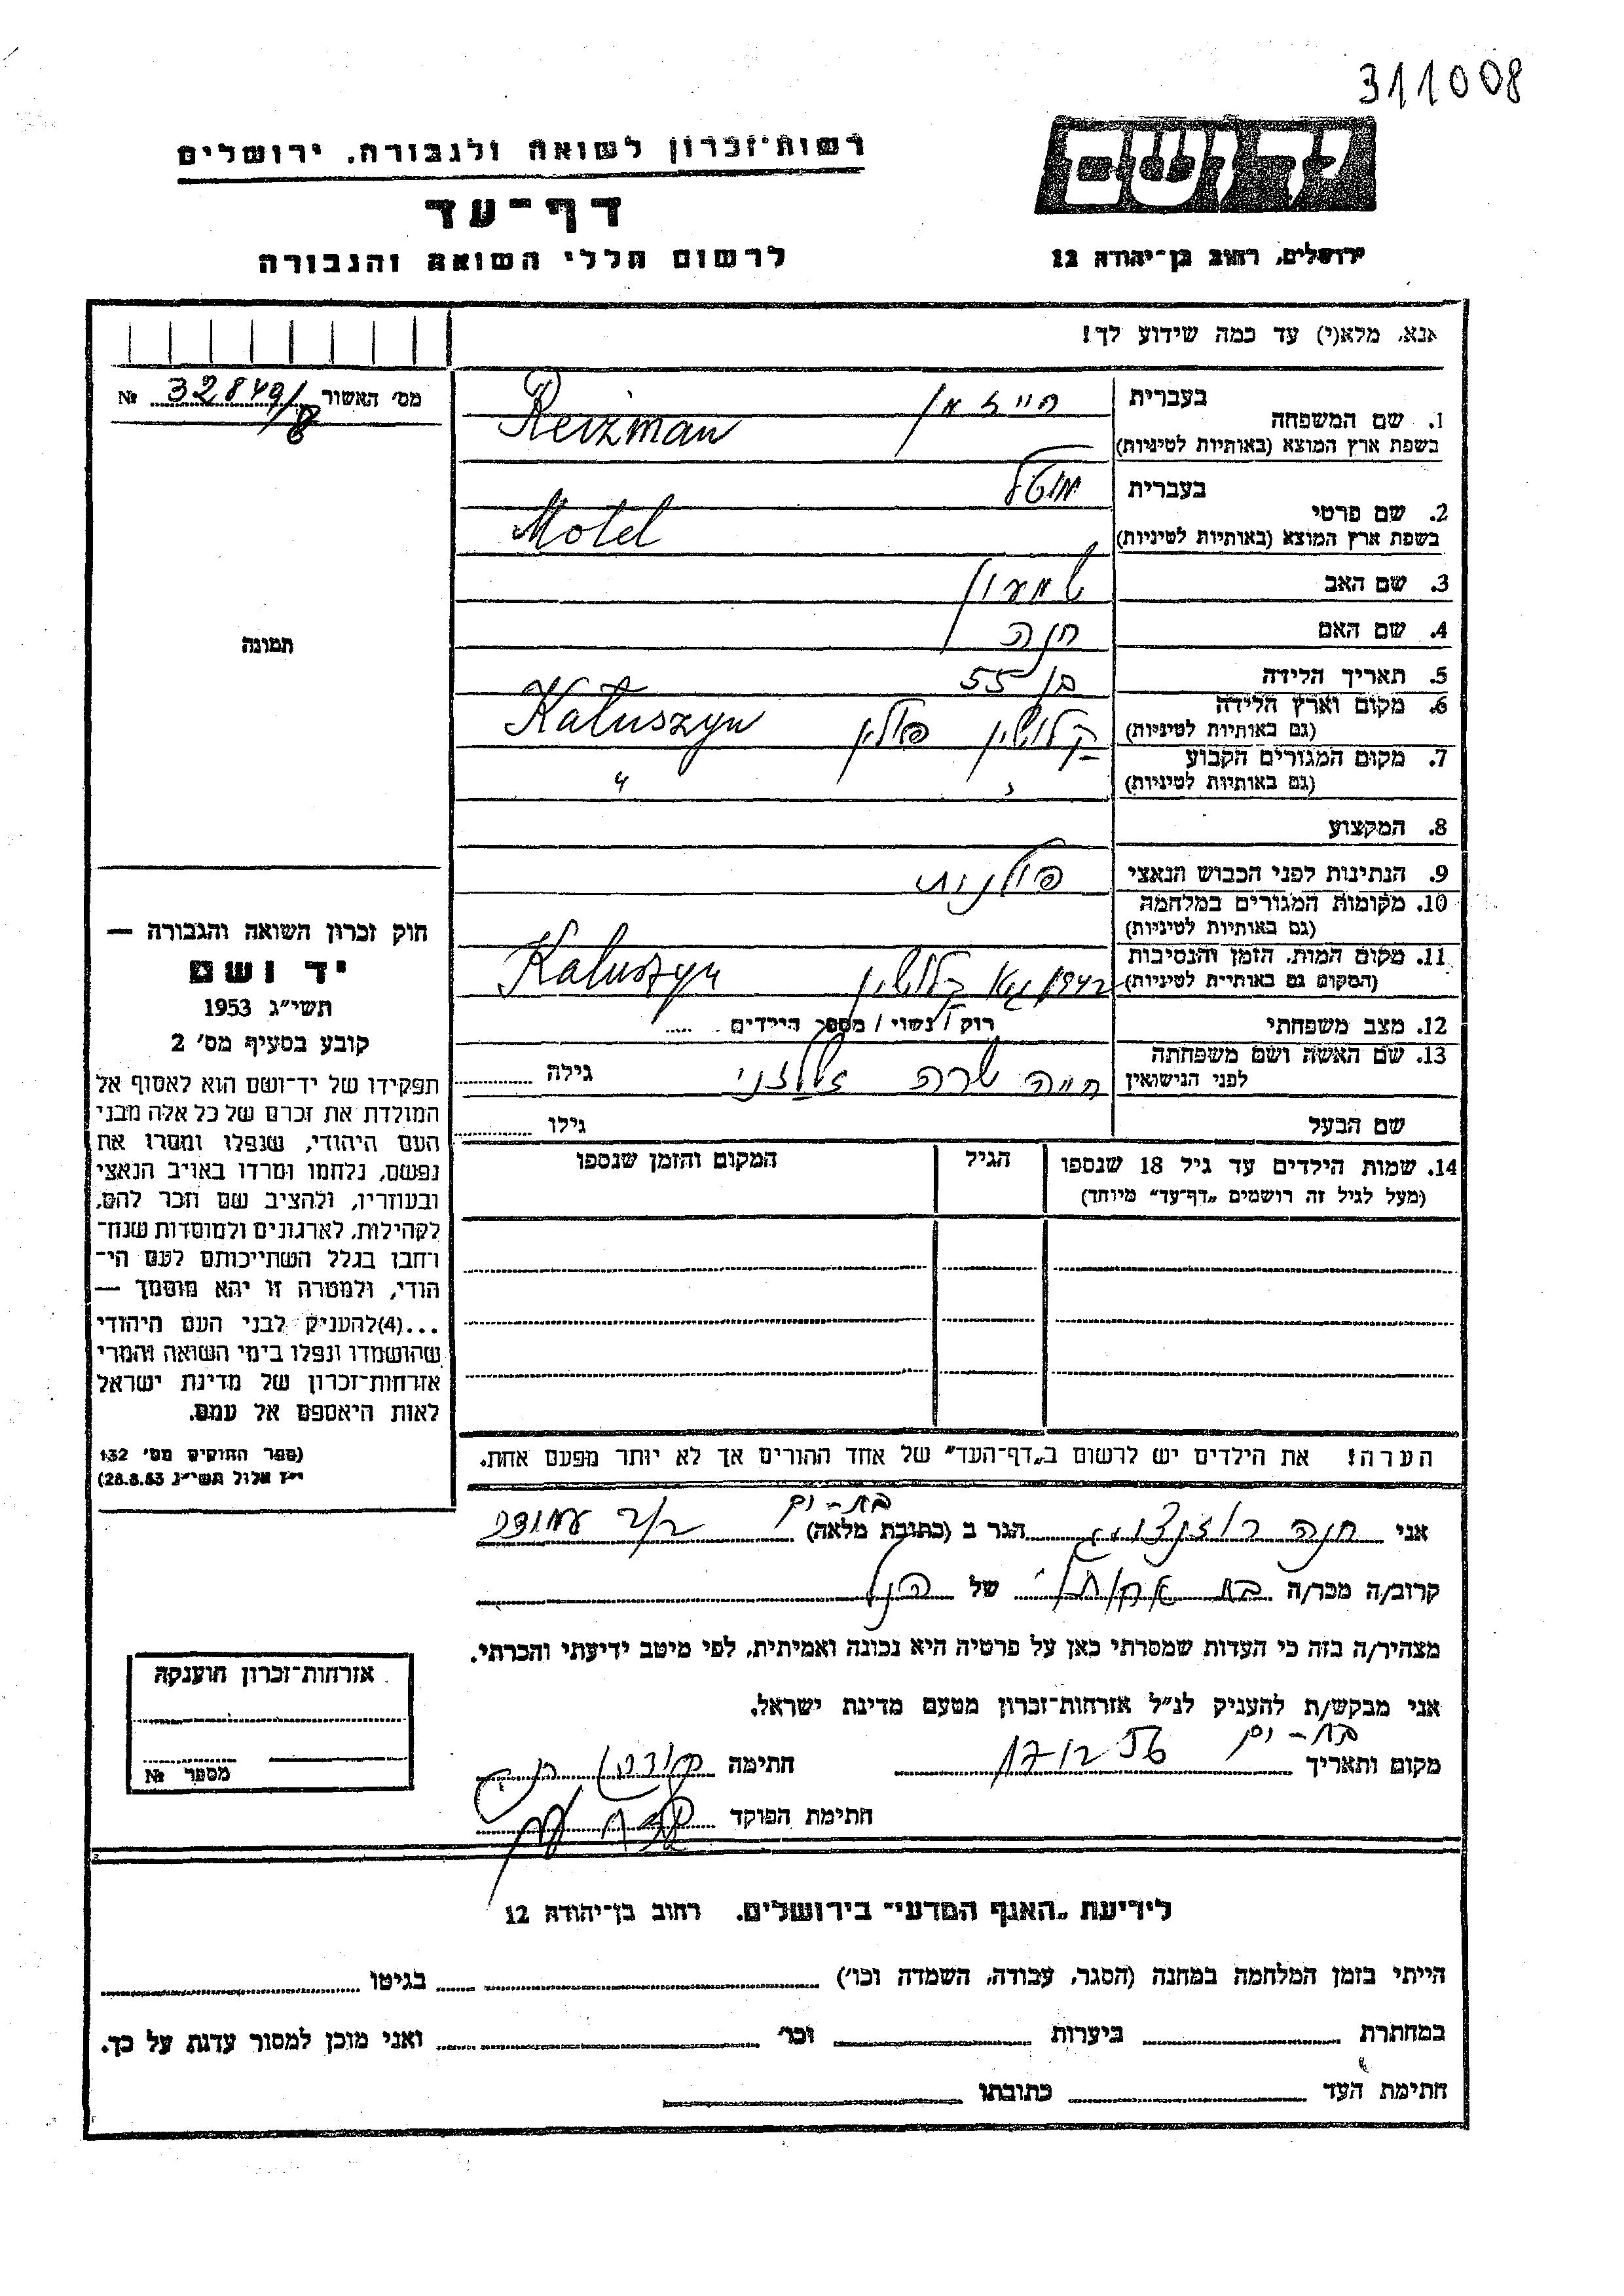 311008
יד ושם
רשות־זכרון לשואה ולגבורה, ירושלים
דף־עד
לרשום חללי השואה והגבורה
ירושלים, רחוב בן־יהודה 12
אנא, מלא(י) עד כמה שידוע לך!
מס׳ האשור 32849/8 №
1. שם המשפחה
בעברית רייזמן
בשפת ארץ המוצא (באותיות לטיניות) Reizman
2. שם פרטי
בעברית מוטל
בשפת ארץ המוצא (באותיות לטיניות) Motel
3. שם האב שמעון
4. שם האם חנה
5. תאריך הלידה בן 55
6. מקום וארץ הלידה קלושין פולין Kałuszyn
(גם באותיות לטיניות)
7. מקום המגורים הקבוע " "
(גם באותיות לטיניות)
8. המקצוע
9. הנתינות לפני הכבוש הנאצי פולנית
10. מקומות המגורים במלחמה
(גם באותיות לטיניות)
11. מקום המות, הזמן והנסיבות 1942 קלושין Kałuszyn
(המקום גם באותיות לטיניות)
12. מצב משפחתי רוק / נשוי / מספר הילדים .....
13. שם האשה ושם משפחתה חיה שרה גילה
לפני הנישואין
שם הבעל גילו
14. שמות הילדים עד גיל 18 שנספו הגיל המקום והזמן שנספו
(מעל לגיל זה רושמים „דף־עד״ מיוחד)
הערה! את הילדים יש לרשום ב„דף־העד״ של אחד ההורים אך לא יותר מפעם אחת.
תמונה
חוק זכרון השואה והגבורה —
יד ושם
תשי״ג 1953
קובע בסעיף מס׳ 2
תפקידו של יד־ושם הוא לאסוף אל
המולדת את זכרם של כל אלה מבני
העם היהודי, שנפלו ומסרו את
נפשם, נלחמו ומרדו באויב הנאצי
ובעוזריו, ולהציב שם וזכר להם,
לקהילות, לארגונים ולמוסדות שנח־
רחבו בגלל השתייכותם לעם הי־
הודי, ולמטרה זו יהא מוסמך —
...(4)להעניק לבני העם היהודי
שהושמדו ונפלו בימי השואה והמרי
אזרחות־זכרון של מדינת ישראל
לאות היאספם אל עמם.
(ספר החוקים מס׳ 132
י״ז אלול תשי״ג 28.8.53)
אני חנה הגר ב (כתובת מלאה) בת-ים
קרוב/ה מכר/ה בת של הנ״ל
מצהיר/ה בזה כי העדות שמסרתי כאן על פרטיה היא נכונה ואמיתית, לפי מיטב ידיעתי והכרתי.
אני מבקש/ת להעניק לנ״ל אזרחות־זכרון מטעם מדינת ישראל.
מקום ותאריך בת-ים 17 12 56 חתימה
חתימת הפוקד
אזרחות־זכרון הוענקה
מספר №
לידיעת „האגף המדעי״ בירושלים, רחוב בן־יהודה 12
הייתי בזמן המלחמה במחנה (הסגר, עבודה, השמדה וכו׳) בגיטו
במחתרת ביערות וכו׳ ואני מוכן למסור עדות על כך.
חתימת העד כתובתו